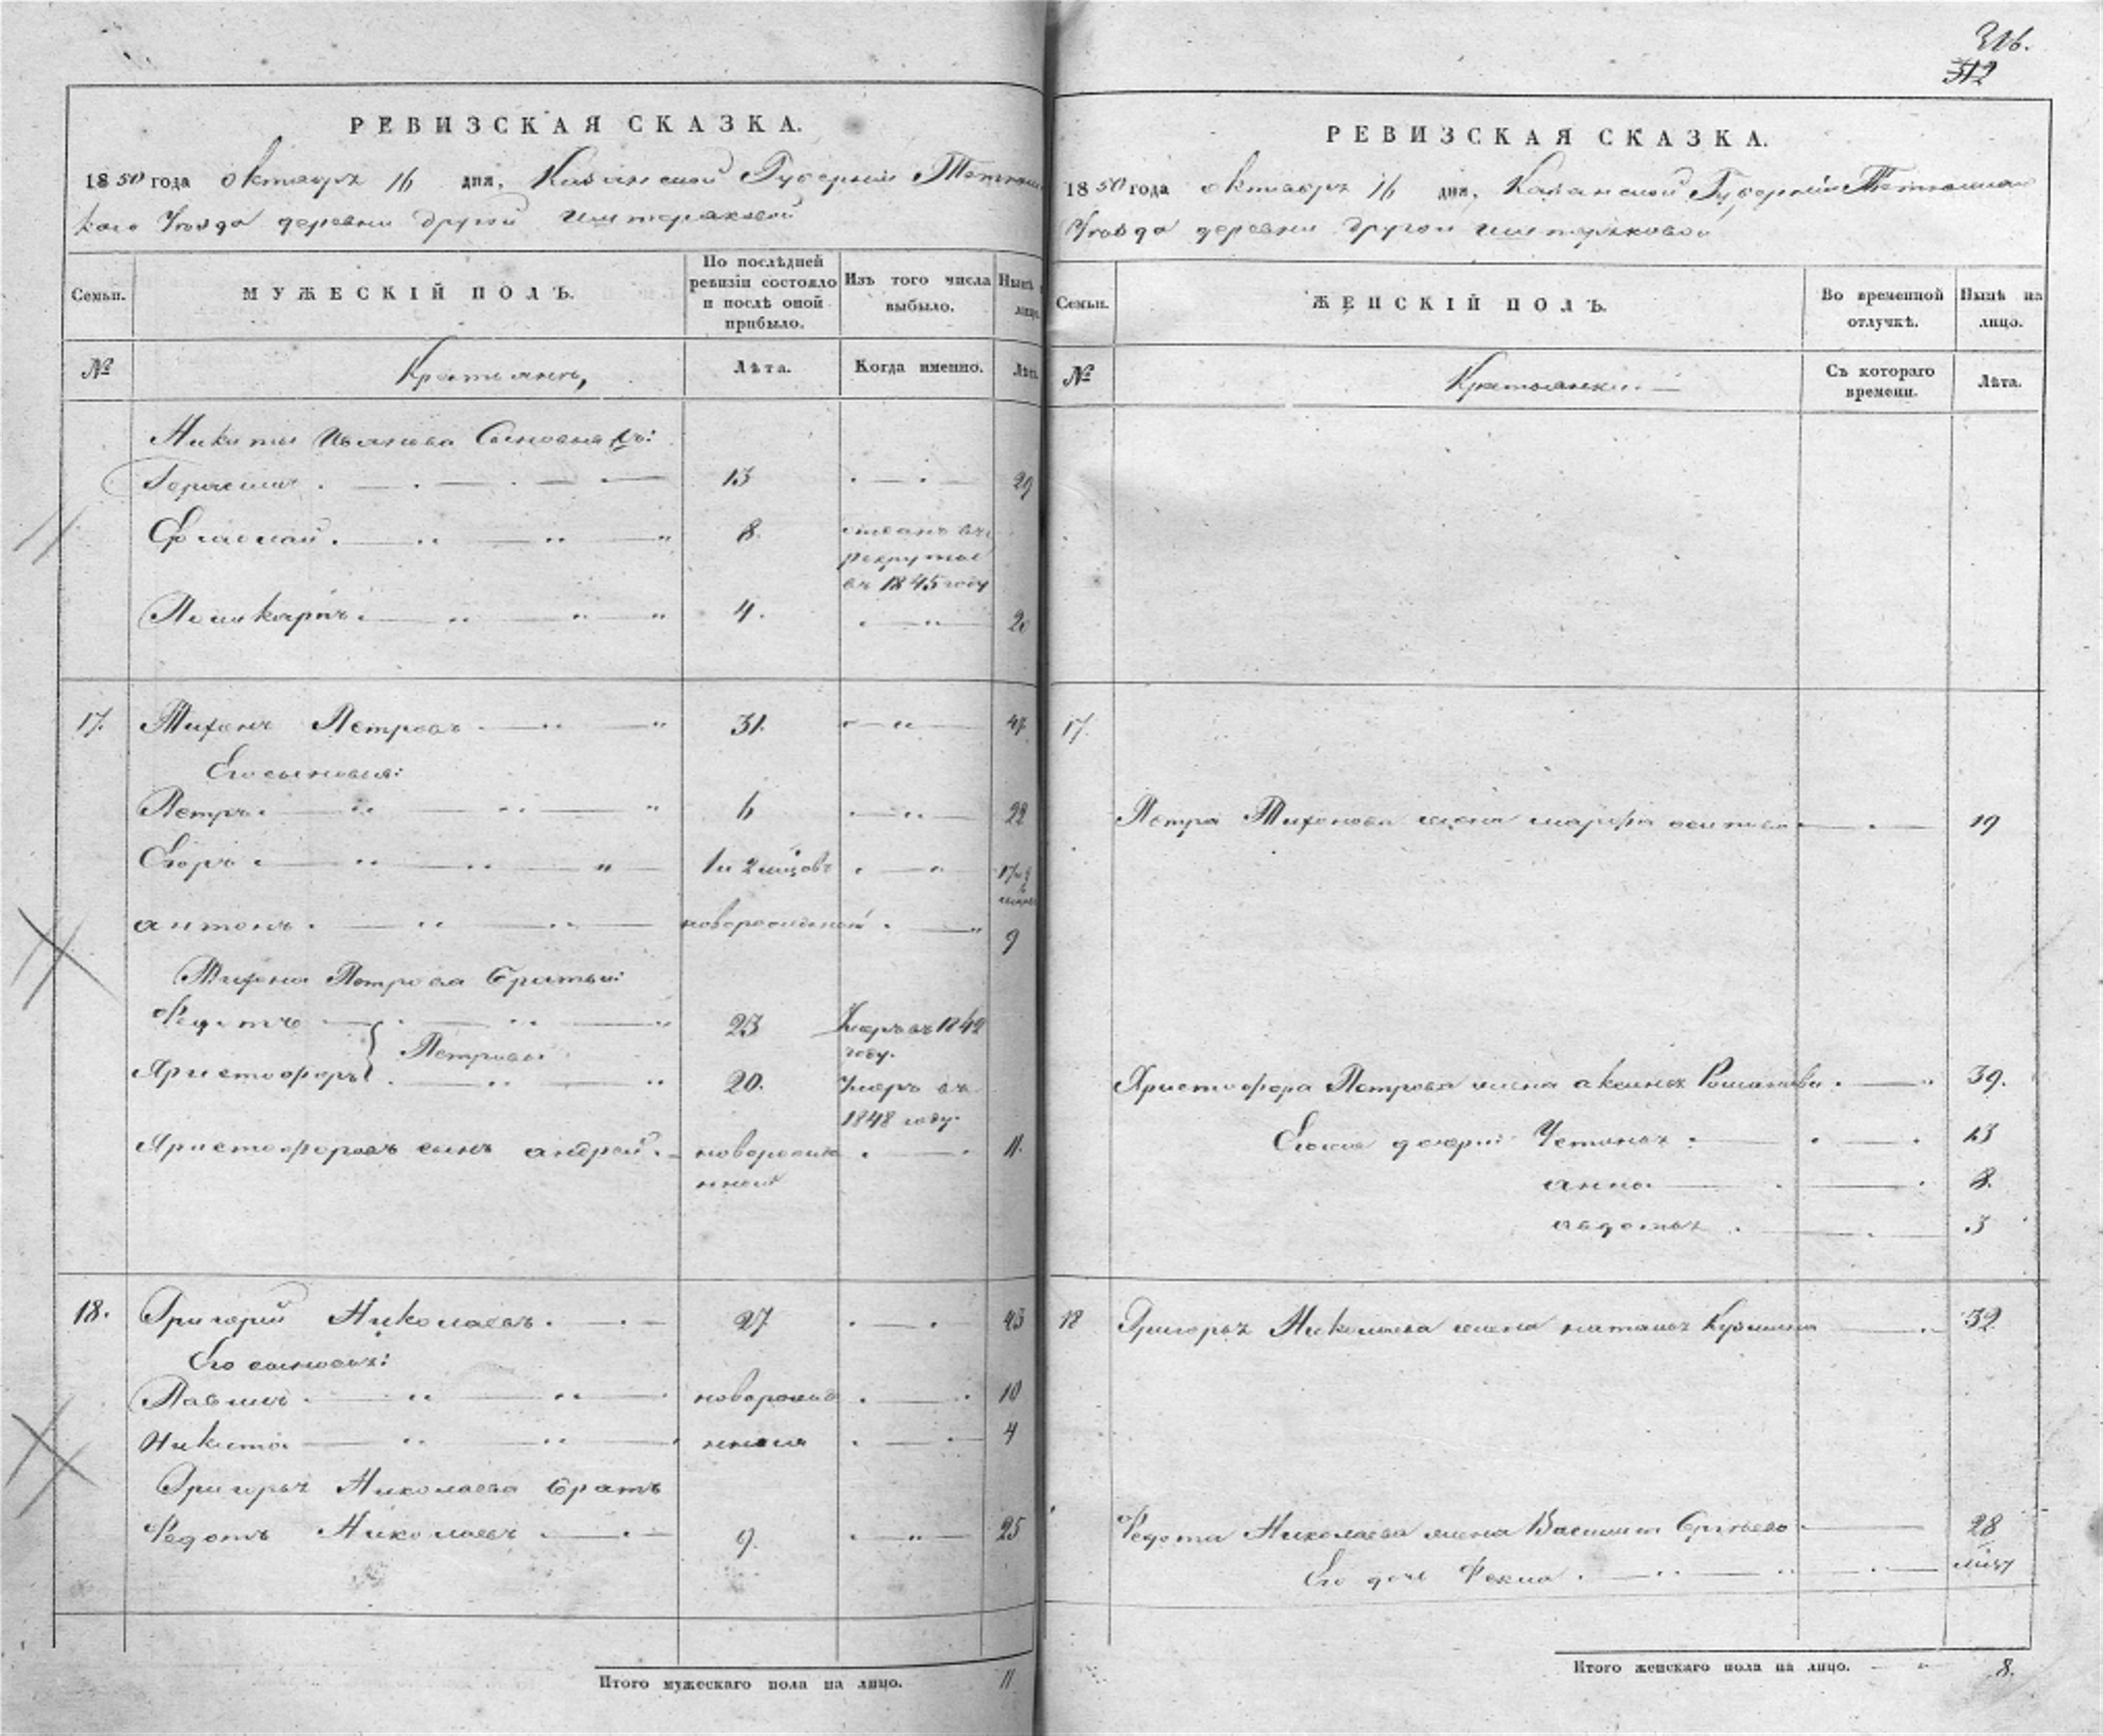 РЕВИЗСКАЯ СКАЗКА.
1850 года октября 16 дня, Казанской Губерніи Тетюш
каго Уезда деревни другой
Семьи.
МУЖЕСКІЙ ПОЛЪ.
По послѣдней ревизіи состояло и послѣ оной прибыло.
Изъ того числа выбыло.
Нынѣ лицо.
№
Крестьянъ,
Лѣта.
Когда именно.
Лѣта.
Никиты Иванова Сыновья:
Герасимъ 13 29
8. отданъ въ
рекруты
въ 1845 году
Поликарпъ 4. 20
17. Тихонъ Петровъ 31. 47
Его сыновья:
Петръ 6 22
Егоръ 1 и 2 мцовъ 17
антонъ новорожденный 9
Тихона Петрова братья:
Федотъ 23 Умеръ въ 1842
году.
Петровы
Христофоръ 20. Умеръ въ
1848 году.
Христофоровъ сынъ андрей новорожде 11.
нный
18. Григорій Николаевъ 27 43
Его сыновья:
Павелъ новорожде 10
Никита нныя 4
Григорья Николаева братъ
Федотъ Николаевъ 9. 25
Итого мужескаго пола на лицо. 11
316.
312
РЕВИЗСКАЯ СКАЗКА.
1850 года октября 16 дня, Казанской Губерніи
Уезда деревни другой
Семьи.
ЖЕНСКІЙ ПОЛЪ.
Во временной отлучкѣ.
Нынѣ на лицо.
№
Крестьянки.
Съ котораго времени.
Лѣта.
17.
Петра Тихонова жена марфа 19
Христофора Петрова жена аксинья Романова 39.
дочери Устинья 13
анна 8.
авдотья 3
18 Григорья Николаева жена наталья Кузмина 32
Федота Николаева жена 28
Его дочь Фекла
Итого женскаго пола на лицо. 8.